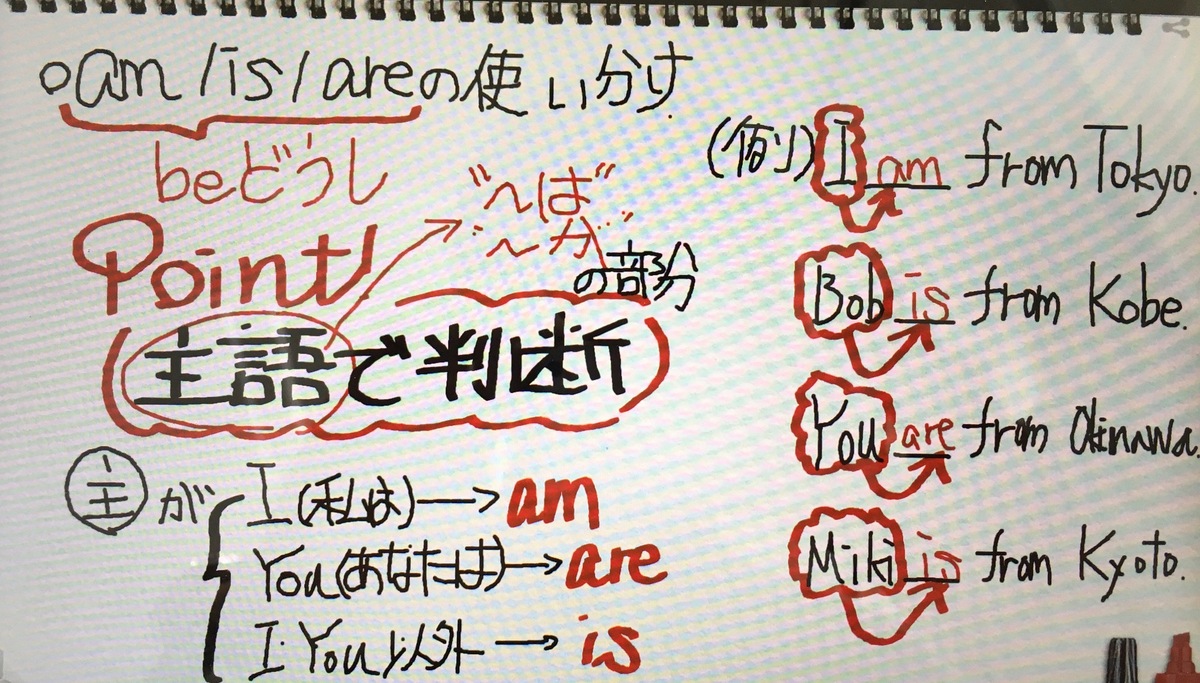 ○am/is/areの使い分け
beどうし
Point
"〜は"
"〜が"
の部分
主語で判断
主が
I(私は)→am
You(あなたは)→are
I・You以外→is
(例)I am from Tokyo.
Bob is from Kobe.
You are from Okinawa.
Miki is from Kyoto.